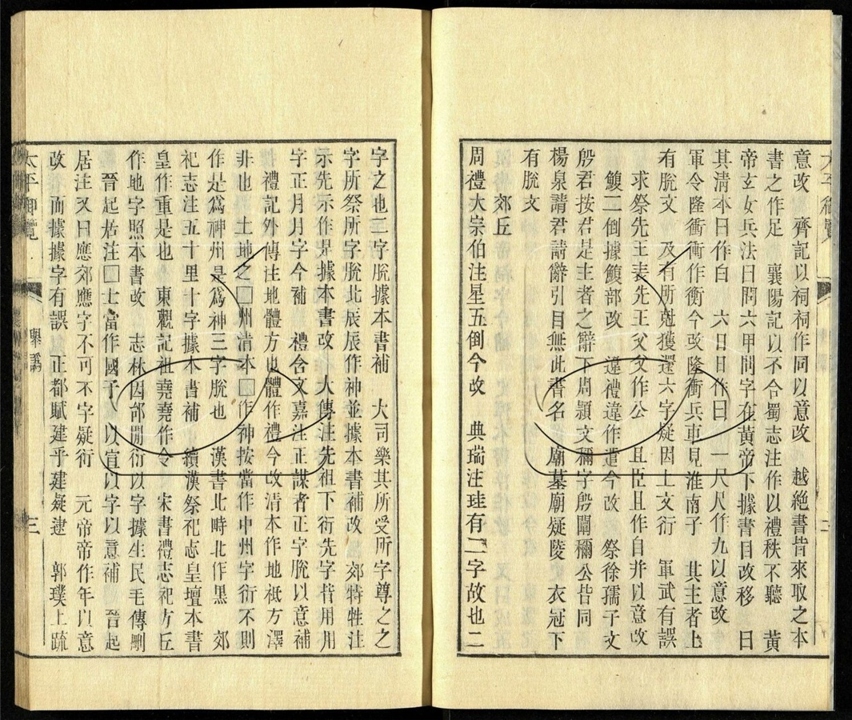 意改　齊記以祠祠作同以意改　越絶書皆來取之本
書之作足　襄陽記以不令蜀志注作以禮秩不聽　黄
帝玄女兵法曰問六甲問字在黄帝下據書目改移　日
其清本日作白　六日日作曰　一尺尺作九以意改
軍令隆衝衝作衡今改隆衝兵車見淮南子　其主者上
有脱文　及有所剋獲還六字疑因上文衍　軍武有誤
求祭先王表先王父父作公　且臣且作自并以意改
餿二倒據餿部改　違禮違作遣今改　祭徐孺子文
殷君按君是主者之辭下周穎文稱字殷闡稱公皆同
楊泉請君請辭引目無此書名　廟墓廟疑陵　衣冠下
有脱文
郊丘
周禮大宗伯注星五倒今改　典瑞注珪有二字故也二
字之也二字脱據本書補　大司樂其所受所字尊之之
字所祭所字脱北辰辰作神並據本書補改　郊特牲注
示先示作界據本書改　大傳注先祖下衍先字皆用用
字正月月字今補　禮含文嘉注正謀者正字脱以意補
禮記外傳注地體方也體作禮今改清本作地祇方澤
非也　土地之□州清本□作神按當作中州字衍不則
作是爲神州是爲神三字脱也　漢書北畤北作黑　郊
祀志注五十里十字據本書補　續漢祭祀志皇壇本書
皇作重是也　東觀記祖堯堯作令　宋書禮志祀方丘
作地字照本書改　志林因部閒衍以字據生民毛傳刪
晉起居注□士當作國子　以宣以字以意補　晉起
居注又曰應郊應字不可不字疑術　元帝帝作年以意
改　而據據字有誤　正都賦建乎建疑逮　郭璞上疏
太平御覽
舉譌
三